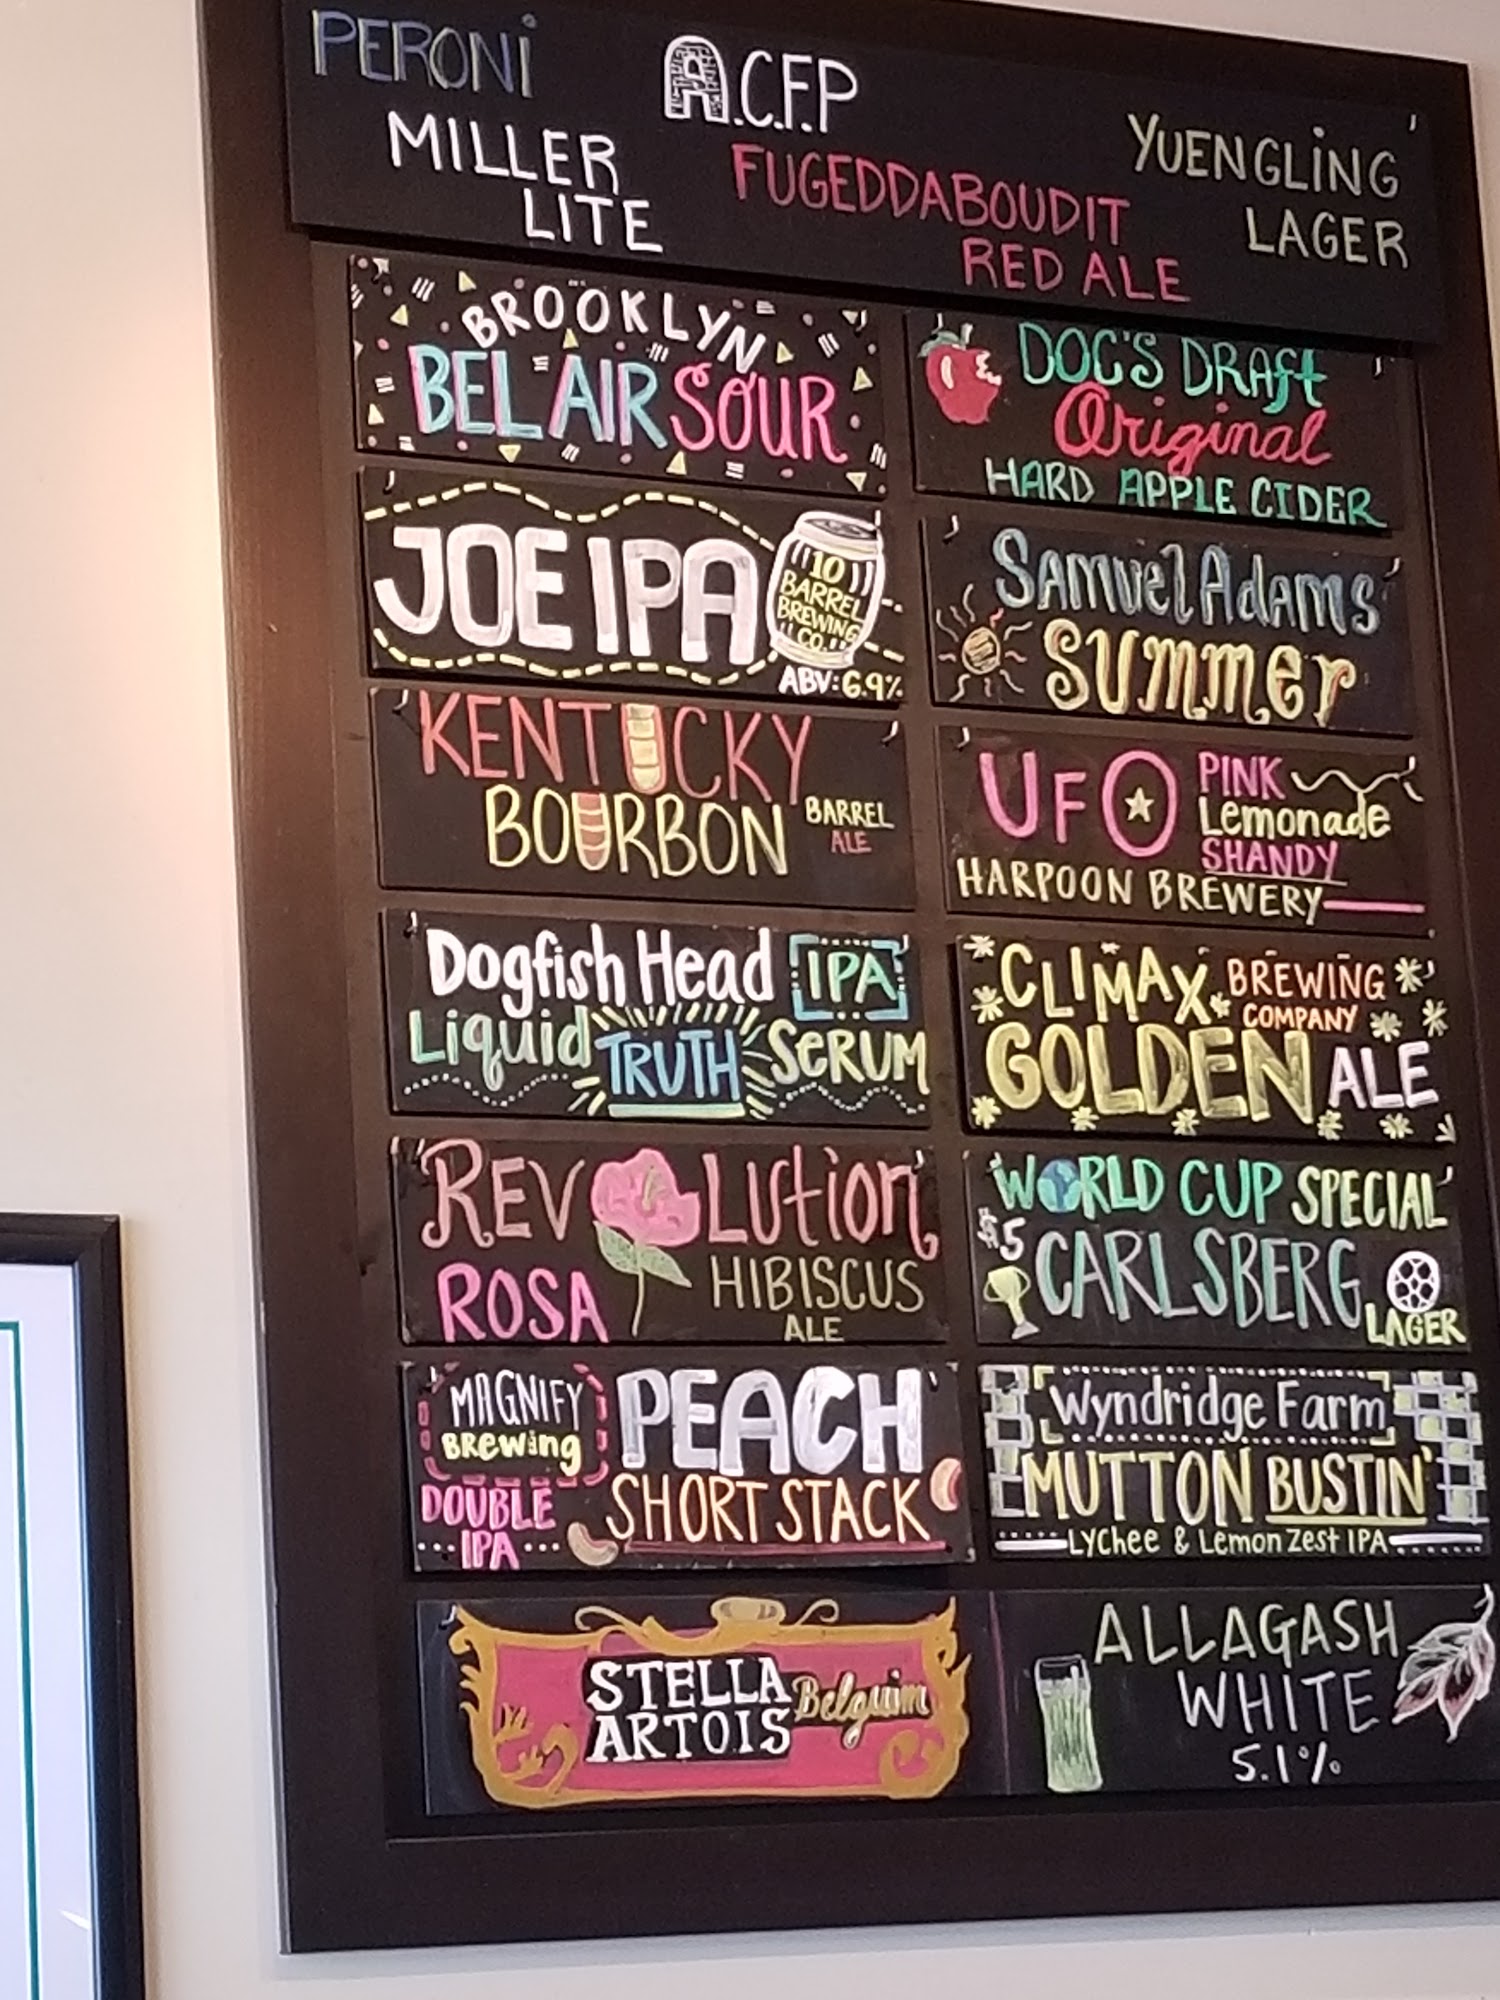 PERONI
MILLER
LITE
A.C.F.P
FUGEDDABOUDIT
RED ALE
YUENGLING
LAGER
BROOKLYN
BEL AIR SOUR
DOC'S DRAFT
Original
HARD APPLE CIDER
JOE IPA
10
BARREL
BREWING
CO.
ABV: 6.9%
Samuel Adams
Summer
KENTUCKY
BOURBON
BARREL
ALE
UFO
PINK
Lemonade
SHANDY
HARPOON BREWERY
Dogfish Head IPA
Liquid TRUTH SERUM
CLIMAX BREWING
COMPANY
GOLDEN ALE
REVOLUTION
ROSA
HIBISCUS
ALE
WORLD CUP SPECIAL
$5
CARLSBERG
LAGER
MAGNIFY
BREWING
DOUBLE
IPA
PEACH
SHORT STACK
Wyndridge Farm
MUTTON BUSTIN'
LYCHEE & LEMON ZEST IPA
STELLA
ARTOIS
Belguim
ALLAGASH
WHITE
5.1%